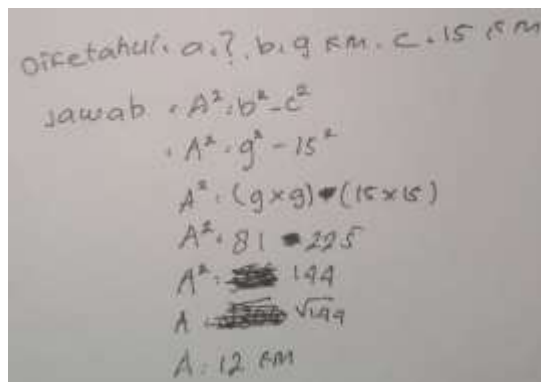 Diketahui. a. ?. b. 9 km. c. 15 km
Jawab : A² : b² - c²
: A² : 9² - 15²
A² : (9x9) - (15x15)
A² : 81 - 225
A² : 144
A : √144
A : 12 km